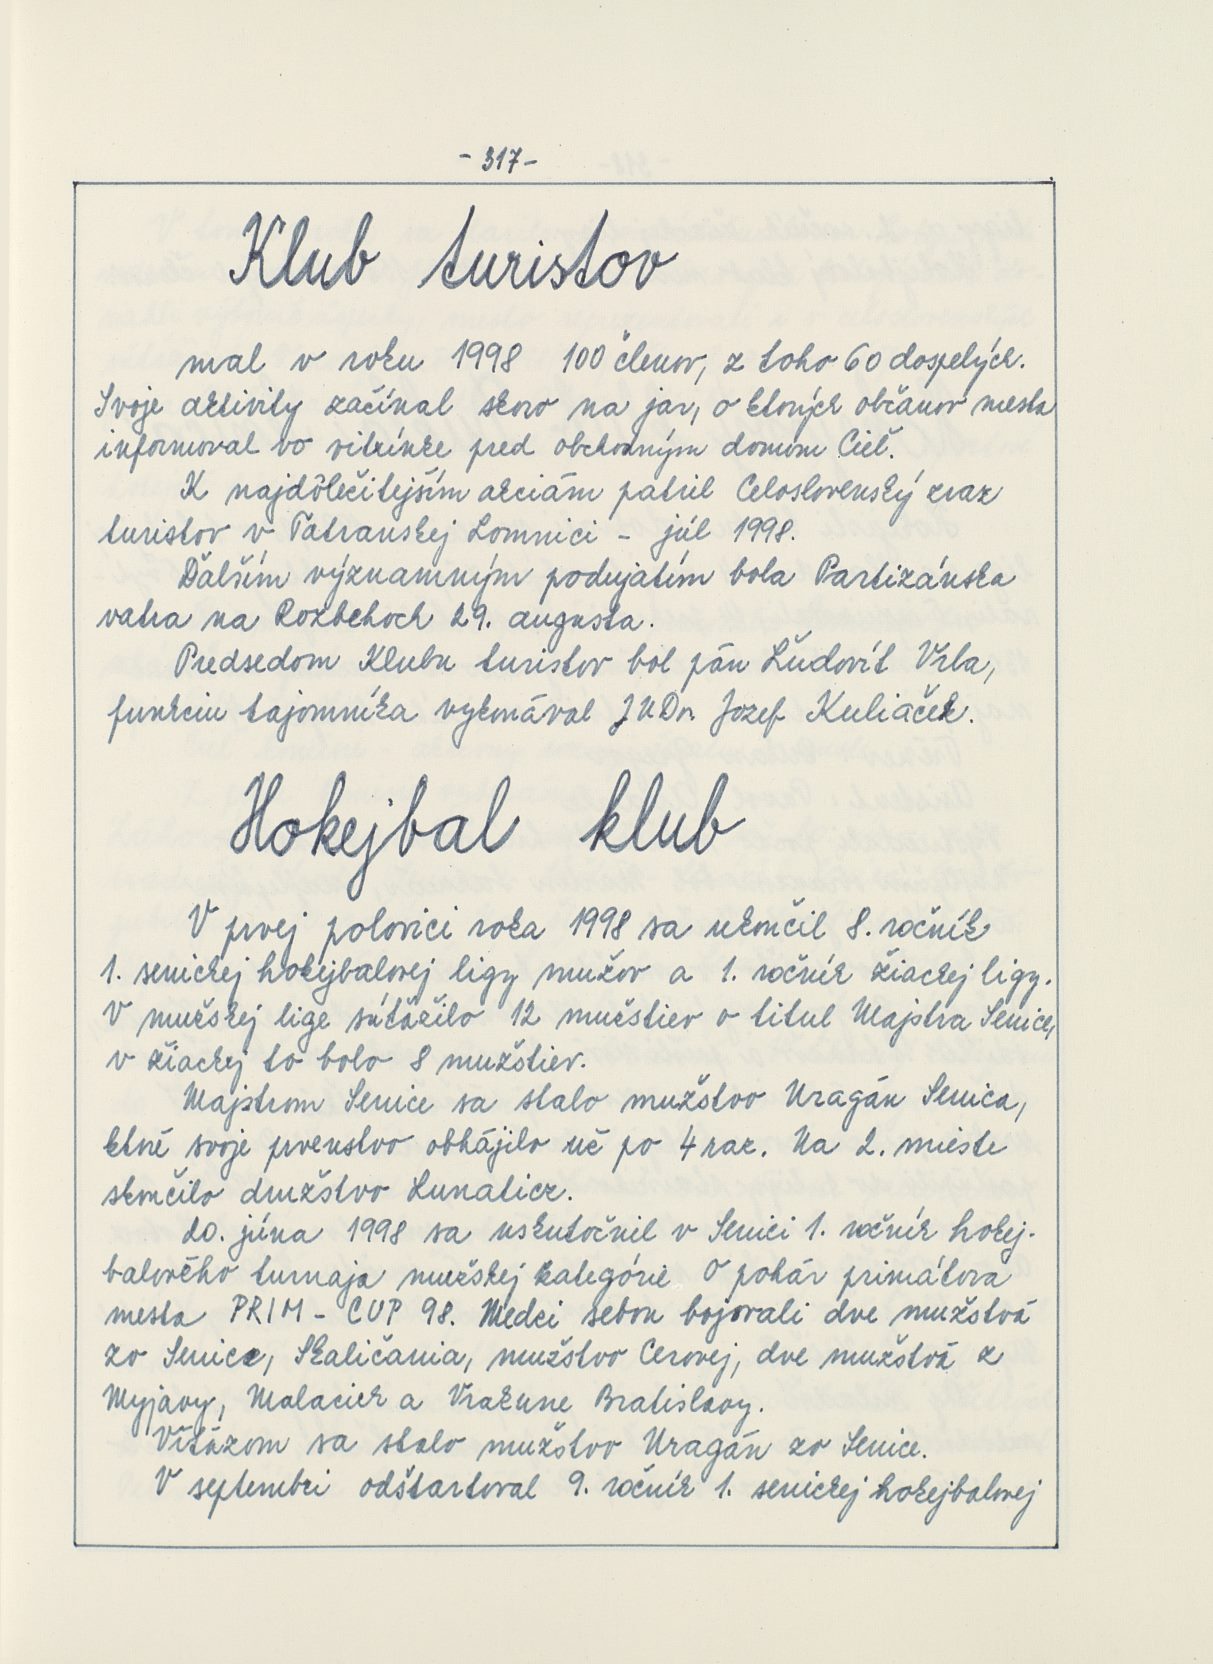 - 317 -
Klub turistov
mal v roku 1998 100 členov, z toho 60 dospelých.
Svoje aktivity začínal skoro na jar, o ktorých občanov mesta
informoval vo vitrínke pred obchodným domom Cieľ.
K najdôležitejším akciám patril Celoslovenský zraz
turistov v Tatranskej Lomnici - júl 1998.
Ďalším významným podujatím bola Partizánska
vatra na Rozbehoch 29. augusta.
Predsedom Klubu turistov bol pán Ľudovít Vrba,
funkciu tajomníka vykonával JUDr. Jozef Kuliaček.
Hokejbal klub
V prvej polovici roka 1998 sa ukončil 8. ročník
1. senickej hokejbalovej ligy mužov a 1. ročník žiackej ligy.
V mužskej lige súťažilo 12 mužstiev o titul Majstra Senice,
v žiackej to bolo 8 mužstiev.
Majstrom Senice sa stalo mužstvo Uragán Senica,
ktoré svoje prvenstvo obhájilo už po 4 raz. Na 2. mieste
skončilo družstvo Lunatick.
20. júna 1998 sa uskutočnil v Senici 1. ročník hokej-
balového turnaja mužskej kategórie O pohár primátora
mesta PRIM - CUP 98. Medzi sebou bojovali dve mužstvá
zo Senice, Skaličania, mužstvo Cerovej, dve mužstvá z
Myjavy, Malaciek a Vrakune Bratislavy.
Víťazom sa stalo mužstvo Uragán zo Senice.
V septembri odštartoval 9. ročník 1. senickej hokejbalovej